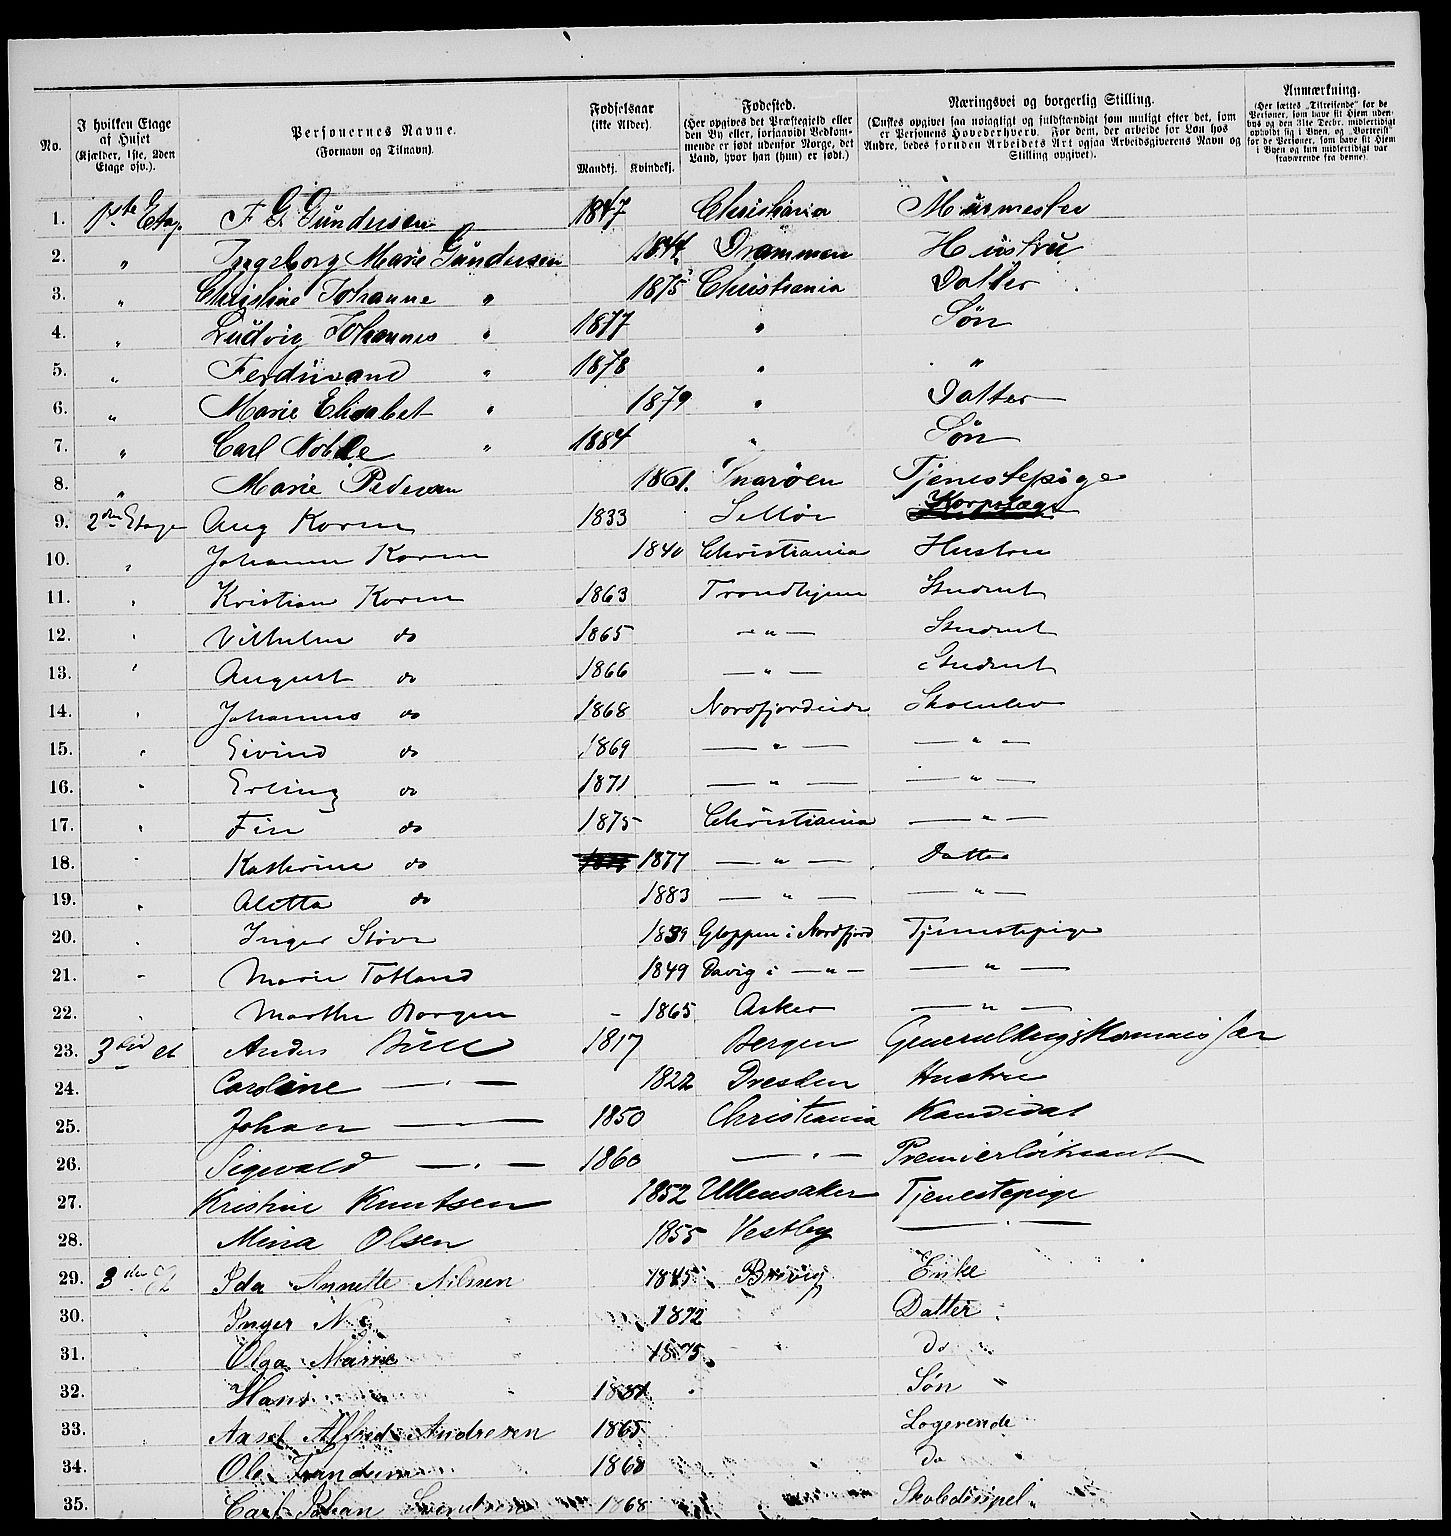 No.
I hvilken Etage af Huset (Kjælder, 1ste, 2den Etage osv.).
Personernes Navne. (Fornavn og Tilnavn).
Fødselsaar (ikke Alder). Mandkj. Kvindekj.
Fødested. (Her opgives det Præstegjeld eller den By eller, forsaavidt Vedkommende er født udenfor Norge, det Land, hvor han (hun) er født.)
Næringsvei og borgerlig Stilling. (Ønskes opgivet saa nøiagtigt og fuldstændigt som muligt efter det, som er Personens Hovederhverv. For dem, der arbeide for Løn hos Andre, bedes foruden Arbeidets Art ogsaa Arbeidsgiverens Navn og Stilling opgivet).
Anmærkning. (Her sættes „Tilreisende“ for de Personer, som have sit Hjem udenbys og den 31te Decbr. midlertidigt opholdt sig i Byen, og „Bortreist“ for de Personer, som have sit Hjem i Byen og kun midlertidigt var fraværende fra denne).
1. 1ste Etag. F. G. Gundersen 1847 Christiania Murmester
2. " Ingeborg Marie Gundersen 1844 Drammen Hustru
3. " Christine Johanne " 1875 Christiania Datter
4. " Ludvig Johannes " 1877 " Søn
5. " Ferdinand " 1878 " "
6. " Marie Elisabet " 1879 " Datter
7. " Carl " 1884 " Søn
8. " Marie Pedersen 1861. Snarøen Tjenestepige
9. 2den Etage Aug Koren 1833 Selløe Korpslæge
10. " Johanne Koren 1840 Christiania Hustru
11. " Kristian Koren 1863 Trondhjem Student
12. " Vilhelm do 1865 — " — Student
13. " August do 1866 — " — Student
14. " Johannes do 1868 Nordfjordeide Skoleelev
15. " Eivind do 1869 — " — — " —
16. " Erling do 1871 — " — — " —
17. " Finn do 1875 Christiania — " —
18. " Kathrine do 1877 — " — Datter
19. " Aletta do 1883 — " — — " —
20. " Inger Støve 1839 Gloppen i Nordfjord Tjenestepige
21. " Marie Totland 1849 Davig i — " — — " —
22. " Marthe Borgen 1865 Asker — " —
23. 3die et Anders Büll 1817 Bergen Generalkrigskommissær
24. Caroline — " — 1822 Dresden Hustru
25. Johan — " — 1850 Christiania Kandidat
26. Sigvald — " — 1860 — " — Premierløitnant
27. Kristine Knutsen 1852 Ullensaker Tjenestepige
28. Mina Olsen 1855 Vestby — " —
29. 3die Et Ida Annette Nilssen 1845 Brevig Enke
30. Inger N. 1872 Datter
31. Olga Marie 1875 " do "
32. Hans 1881 " Søn "
33. Axsel Alfred Andresen 1865 Logerende
34. Ole 1868 do "
35. Carl Johan Svendsen 1868 Skoledisipel